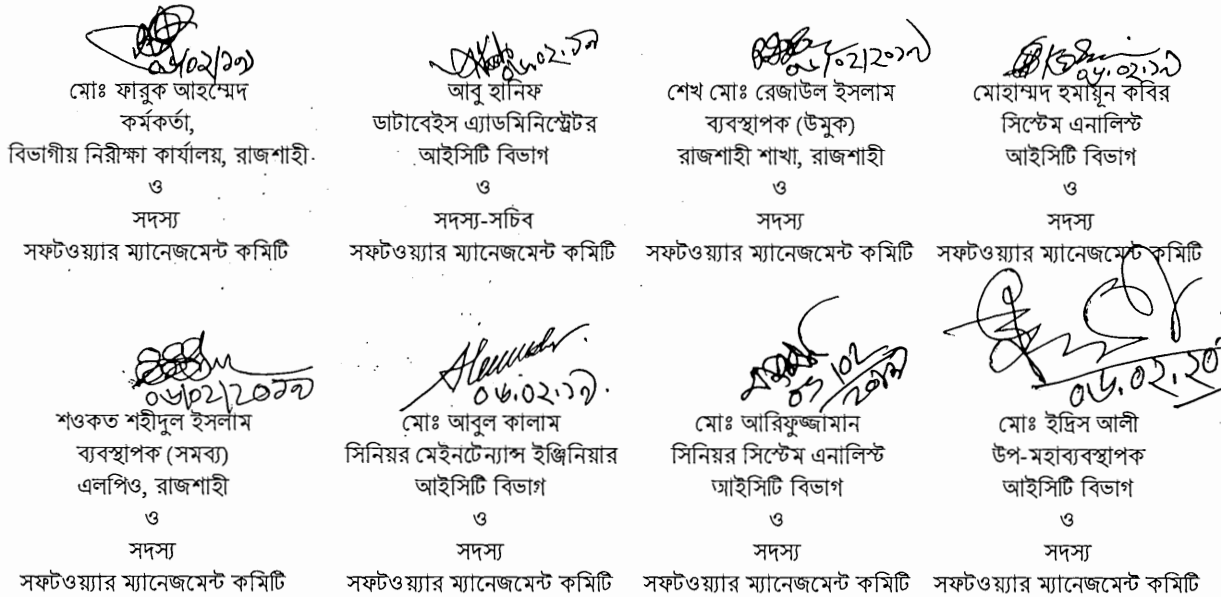 ০৬/০২/১৭
মোঃ ফারুক আহম্মেদ
কর্মকর্তা,
বিভাগীয় নিরীক্ষা কার্যালয়, রাজশাহী
ও
সদস্য
সফটওয়্যার ম্যানেজমেন্ট কমিটি
০৬.০২.১৭
আবু হানিফ
ডাটাবেইস এ্যাডমিনিস্ট্রেটর
আইসিটি বিভাগ
ও
সদস্য-সচিব
সফটওয়্যার ম্যানেজমেন্ট কমিটি
০৬/০২/২০১৭
শেখ মোঃ রেজাউল ইসলাম
ব্যবস্থাপক (উমুক)
রাজশাহী শাখা, রাজশাহী
ও
সদস্য
সফটওয়্যার ম্যানেজমেন্ট কমিটি
০৬.০২.১৭
মোহাম্মদ হুমায়ূন কবির
সিস্টেম এনালিস্ট
আইসিটি বিভাগ
ও
সদস্য
সফটওয়্যার ম্যানেজমেন্ট কমিটি
০৬/০২/২০১৭
শওকত শহীদুল ইসলাম
ব্যবস্থাপক (সমব্য)
এলপিও, রাজশাহী
ও
সদস্য
সফটওয়্যার ম্যানেজমেন্ট কমিটি
০৬.০২.১৭.
মোঃ আবুল কালাম
সিনিয়র মেইনটেন্যান্স ইঞ্জিনিয়ার
আইসিটি বিভাগ
ও
সদস্য
সফটওয়্যার ম্যানেজমেন্ট কমিটি
মোঃ আরিফুজ্জামান
সিনিয়র সিস্টেম এনালিস্ট
আইসিটি বিভাগ
ও
সদস্য
সফটওয়্যার ম্যানেজমেন্ট কমিটি
০৬.০২.২০
মোঃ ইদ্রিস আলী
উপ-মহাব্যবস্থাপক
আইসিটি বিভাগ
ও
সদস্য
সফটওয়্যার ম্যানেজমেন্ট কমিটি